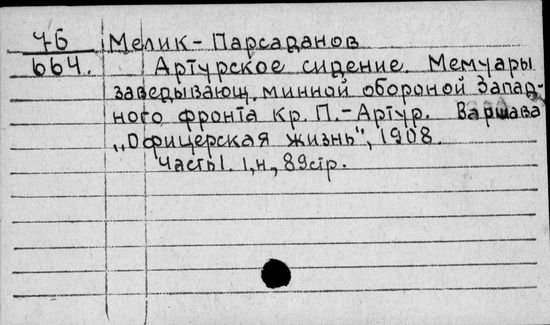 76 Мелик-Парсаданов
664. Артурское сидение. Мемуары
заведывающ. минной обороной Запад-
ного фронта Кр. П.-Артур. Варшава
„Офицерская жизнь", 1908.
Часть I. 1,н, 89стр.